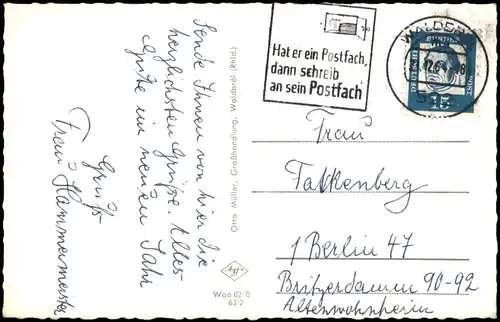 Sende Ihnen von hier die
herzlichsten Grüße. Alles
Gute im neuen Jahr
Gruß
Frau Hammermeister
Otto Müller, Großhandlung, Waldbröl (Rhld.)
Hat er ein Postfach,
dann schreib
an sein Postfach
DEUTSCHE BUNDESPOST
15
Frau
Falkenberg
1 Berlin 47
Britzerdamm 90-92
Altenwohnheim